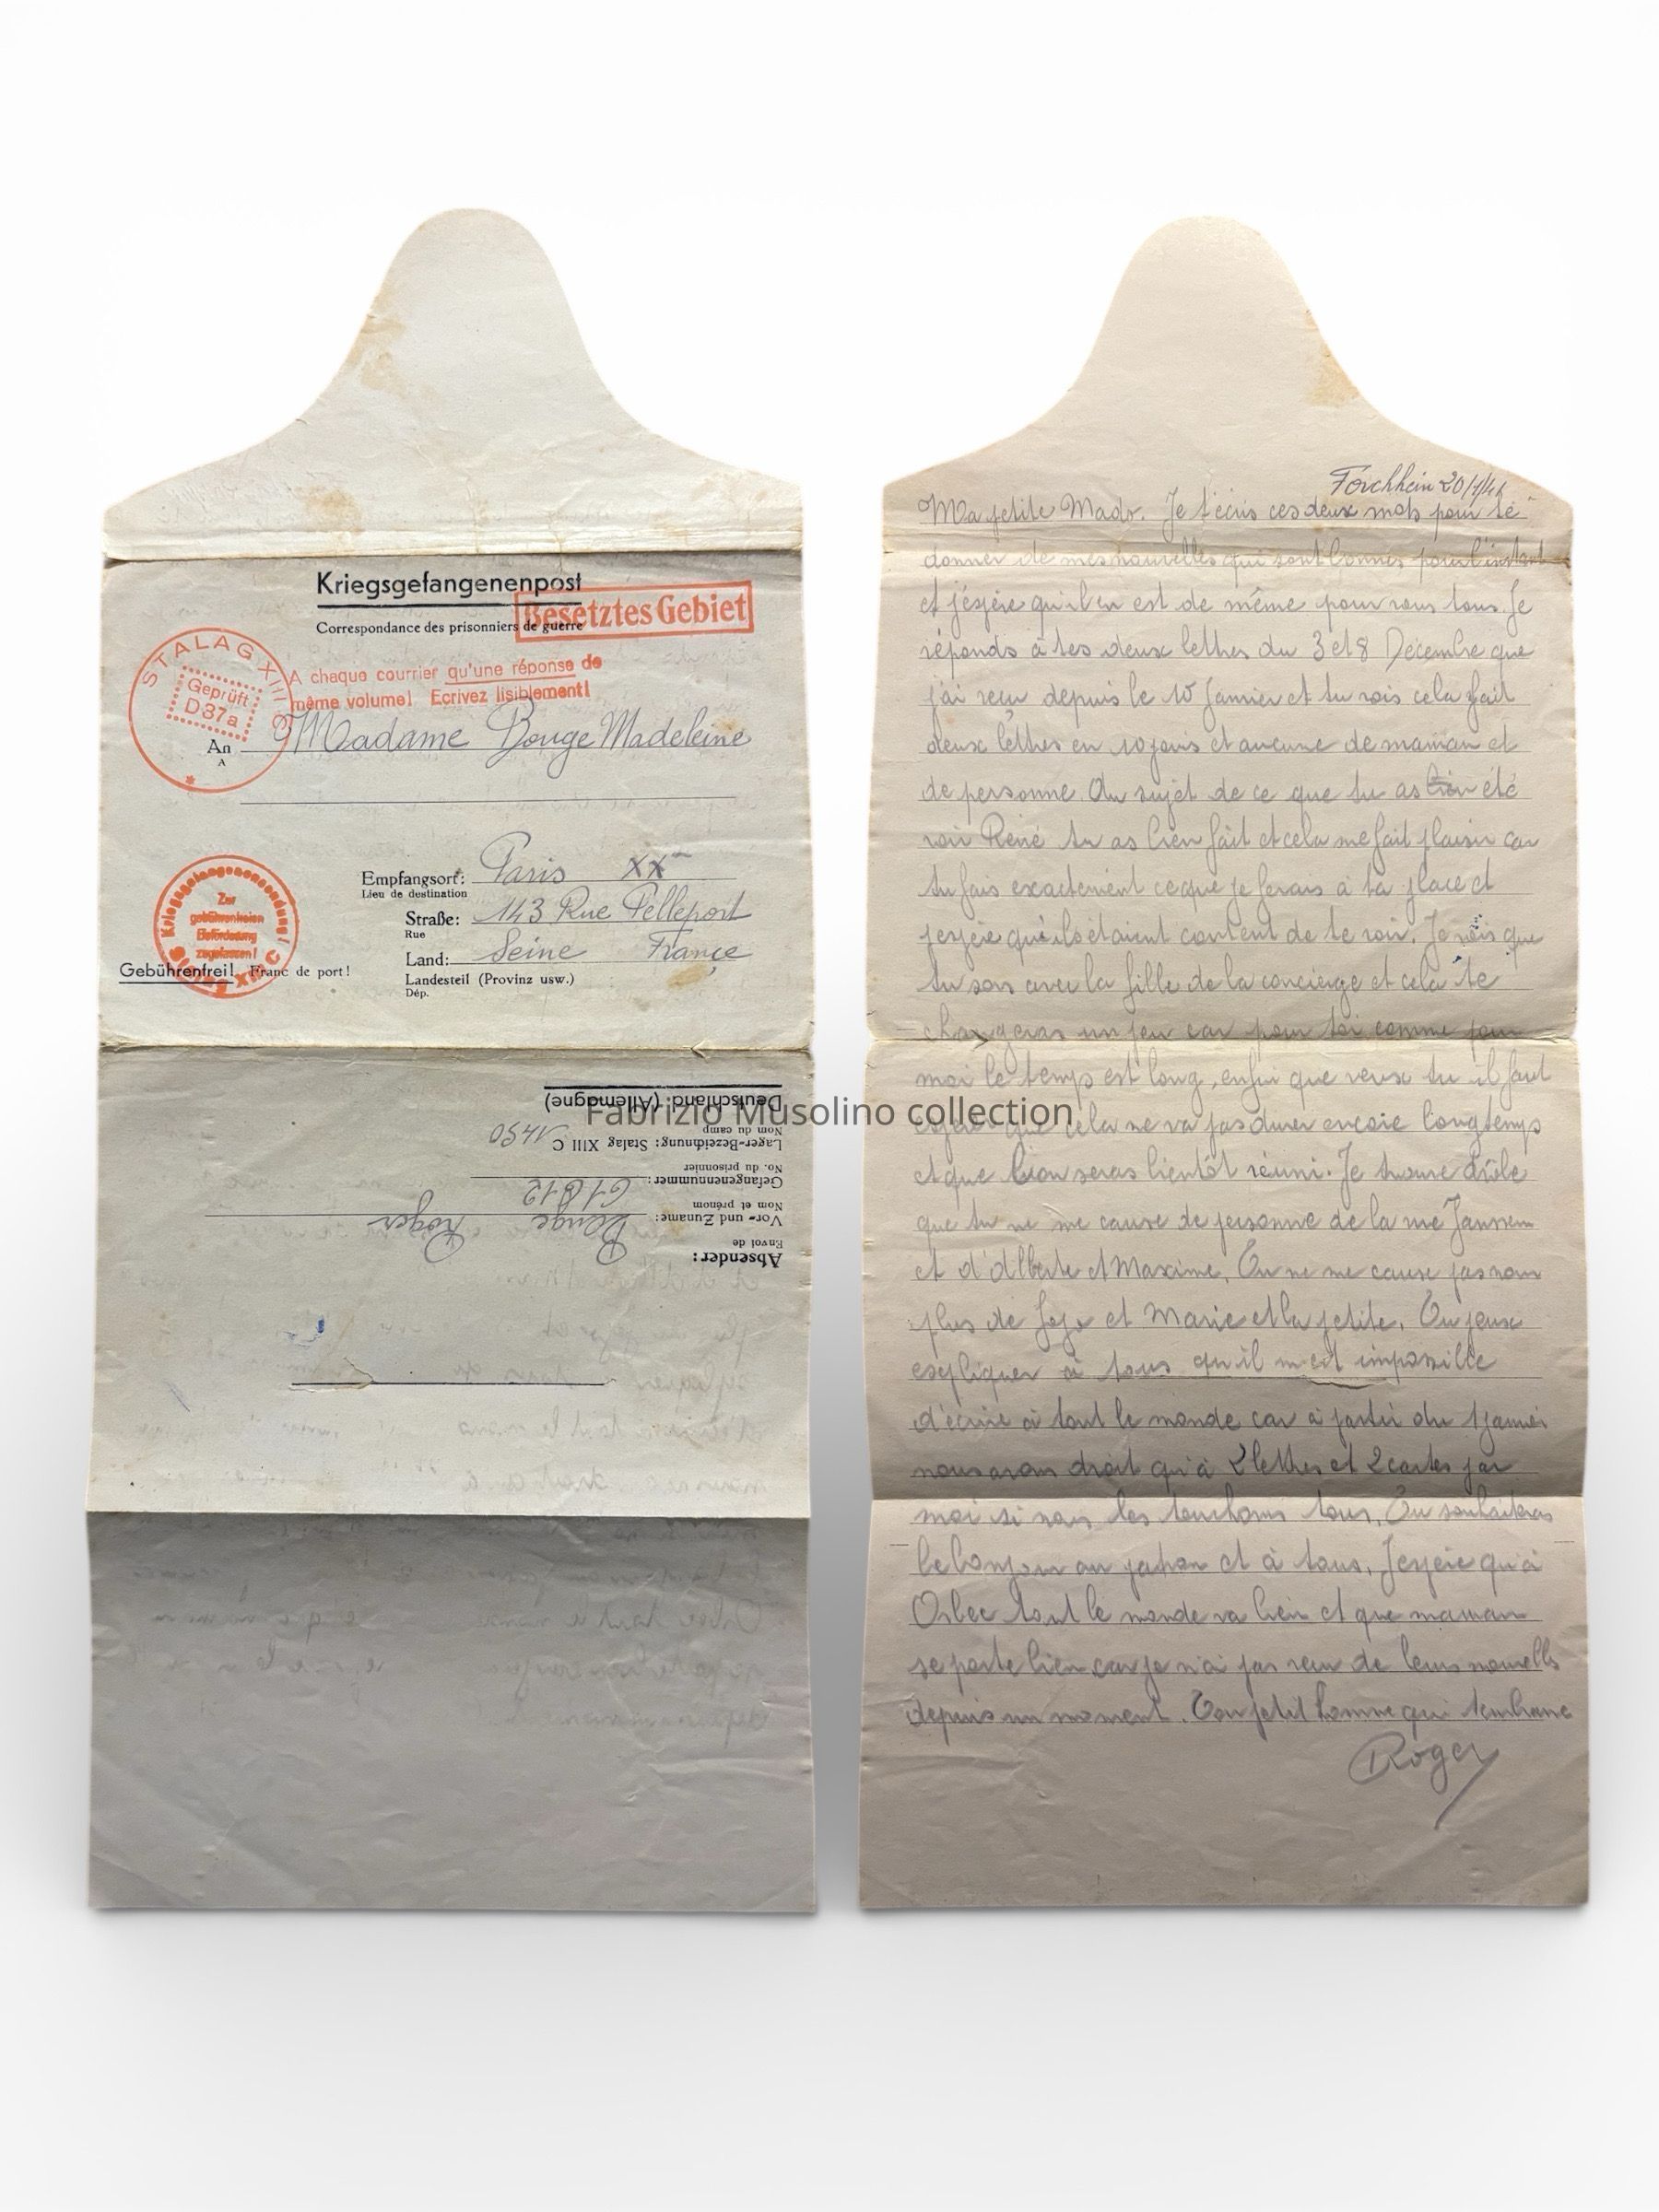 Kriegsgefangenenpost
Correspondance des prisonniers de guerre
Besetztes Gebiet
STALAG XIII C
Geprüft
D37a
A chaque courrier qu'une réponse de
même volume! Ecrivez lisiblement!
An Madame Bouge Madeleine
A
Empfangsort: Paris XXe
Lieu de destination
Straße: 143 Rue Pelleport
Rue
Land: Seine France
Landesteil (Provinz usw.)
Dép.
Kriegsgefangenensendung!
Zur
gebührenfreien
Beförderung
zugelassen!
Stalag XIII C
Gebührenfrei! Franc de port!
Deutschland (Allemagne)
Nom du camp
Lager-Bezeichnung: Stalag XIII C 1490
No. du prisonnier
Gefangenennummer: 61812
Nom et prénom
Vor- und Zuname: Bouge Roger
Envoi de
Absender:
Fabrizio Musolino collection
Forchhein 20/1/41
Ma petite Mado. Je t'écris ces deux mots pour te
donner de mes nouvelles qui sont bonnes pour l'instant
et j'espère qu'il en est de même pour vous tous. Je
réponds à tes deux lettres du 3 et 8 Décembre que
j'ai reçu depuis le 10 Janvier et tu vois cela fait
deux lettres en 10 jours et aucune de maman et
de personne. Au sujet de ce que tu as été
voir René tu as bien fait et cela me fait plaisir car
tu fais exactement ce que je ferais à ta place et
j'espère qu'ils étaient content de te voir. Je vois que
tu sors avec la fille de la concierge et cela te
changeras un peu car pour toi comme pour
moi le temps est long, enfin que veux tu il faut
espérer que cela ne va pas durer encore longtemps
et que l'on seras bientôt réuni. Je trouve drôle
que tu ne me cause de personne de la rue Janssen
et d'Alberte et Maxime. Tu ne me cause pas non
plus de Jojo et Marie et la petite. Tu peux
expliquer à tous qu'il m'est impossible
d'écrire à tout le monde car à partir du 1 janvier
nous avons droit qu'à 2 lettres et 2 cartes par
moi si nous les touchons tous. Tu souhaiteras
le bonjour au patron et à tous. J'espère qu'à
Orbec tout le monde va bien et que maman
se porte bien car je n'ai pas reçu de leurs nouvelles
depuis un moment. Ton petit homme qui t'embrasse
Roger